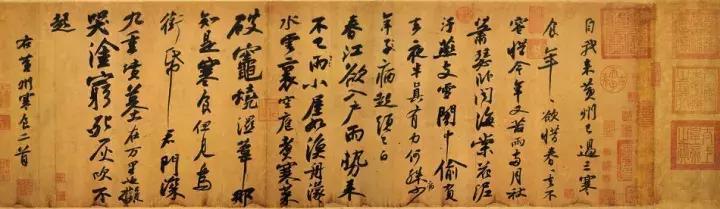 自我來黃州已過三寒
食年年欲惜春春去不
容惜今年又苦雨兩月秋
蕭瑟臥聞海棠花泥
汙燕支雪闇中偷負
去夜半真有力何殊病少
年子病起須已白
春江欲入戶雨勢來
不已雨小屋如漁舟濛濛
水雲裏空庖煮寒菜
破竈燒濕葦那
知是寒食但見烏
銜帋君門深
九重墳墓在萬里也擬
哭塗窮死灰吹不
起
右黃州寒食二首